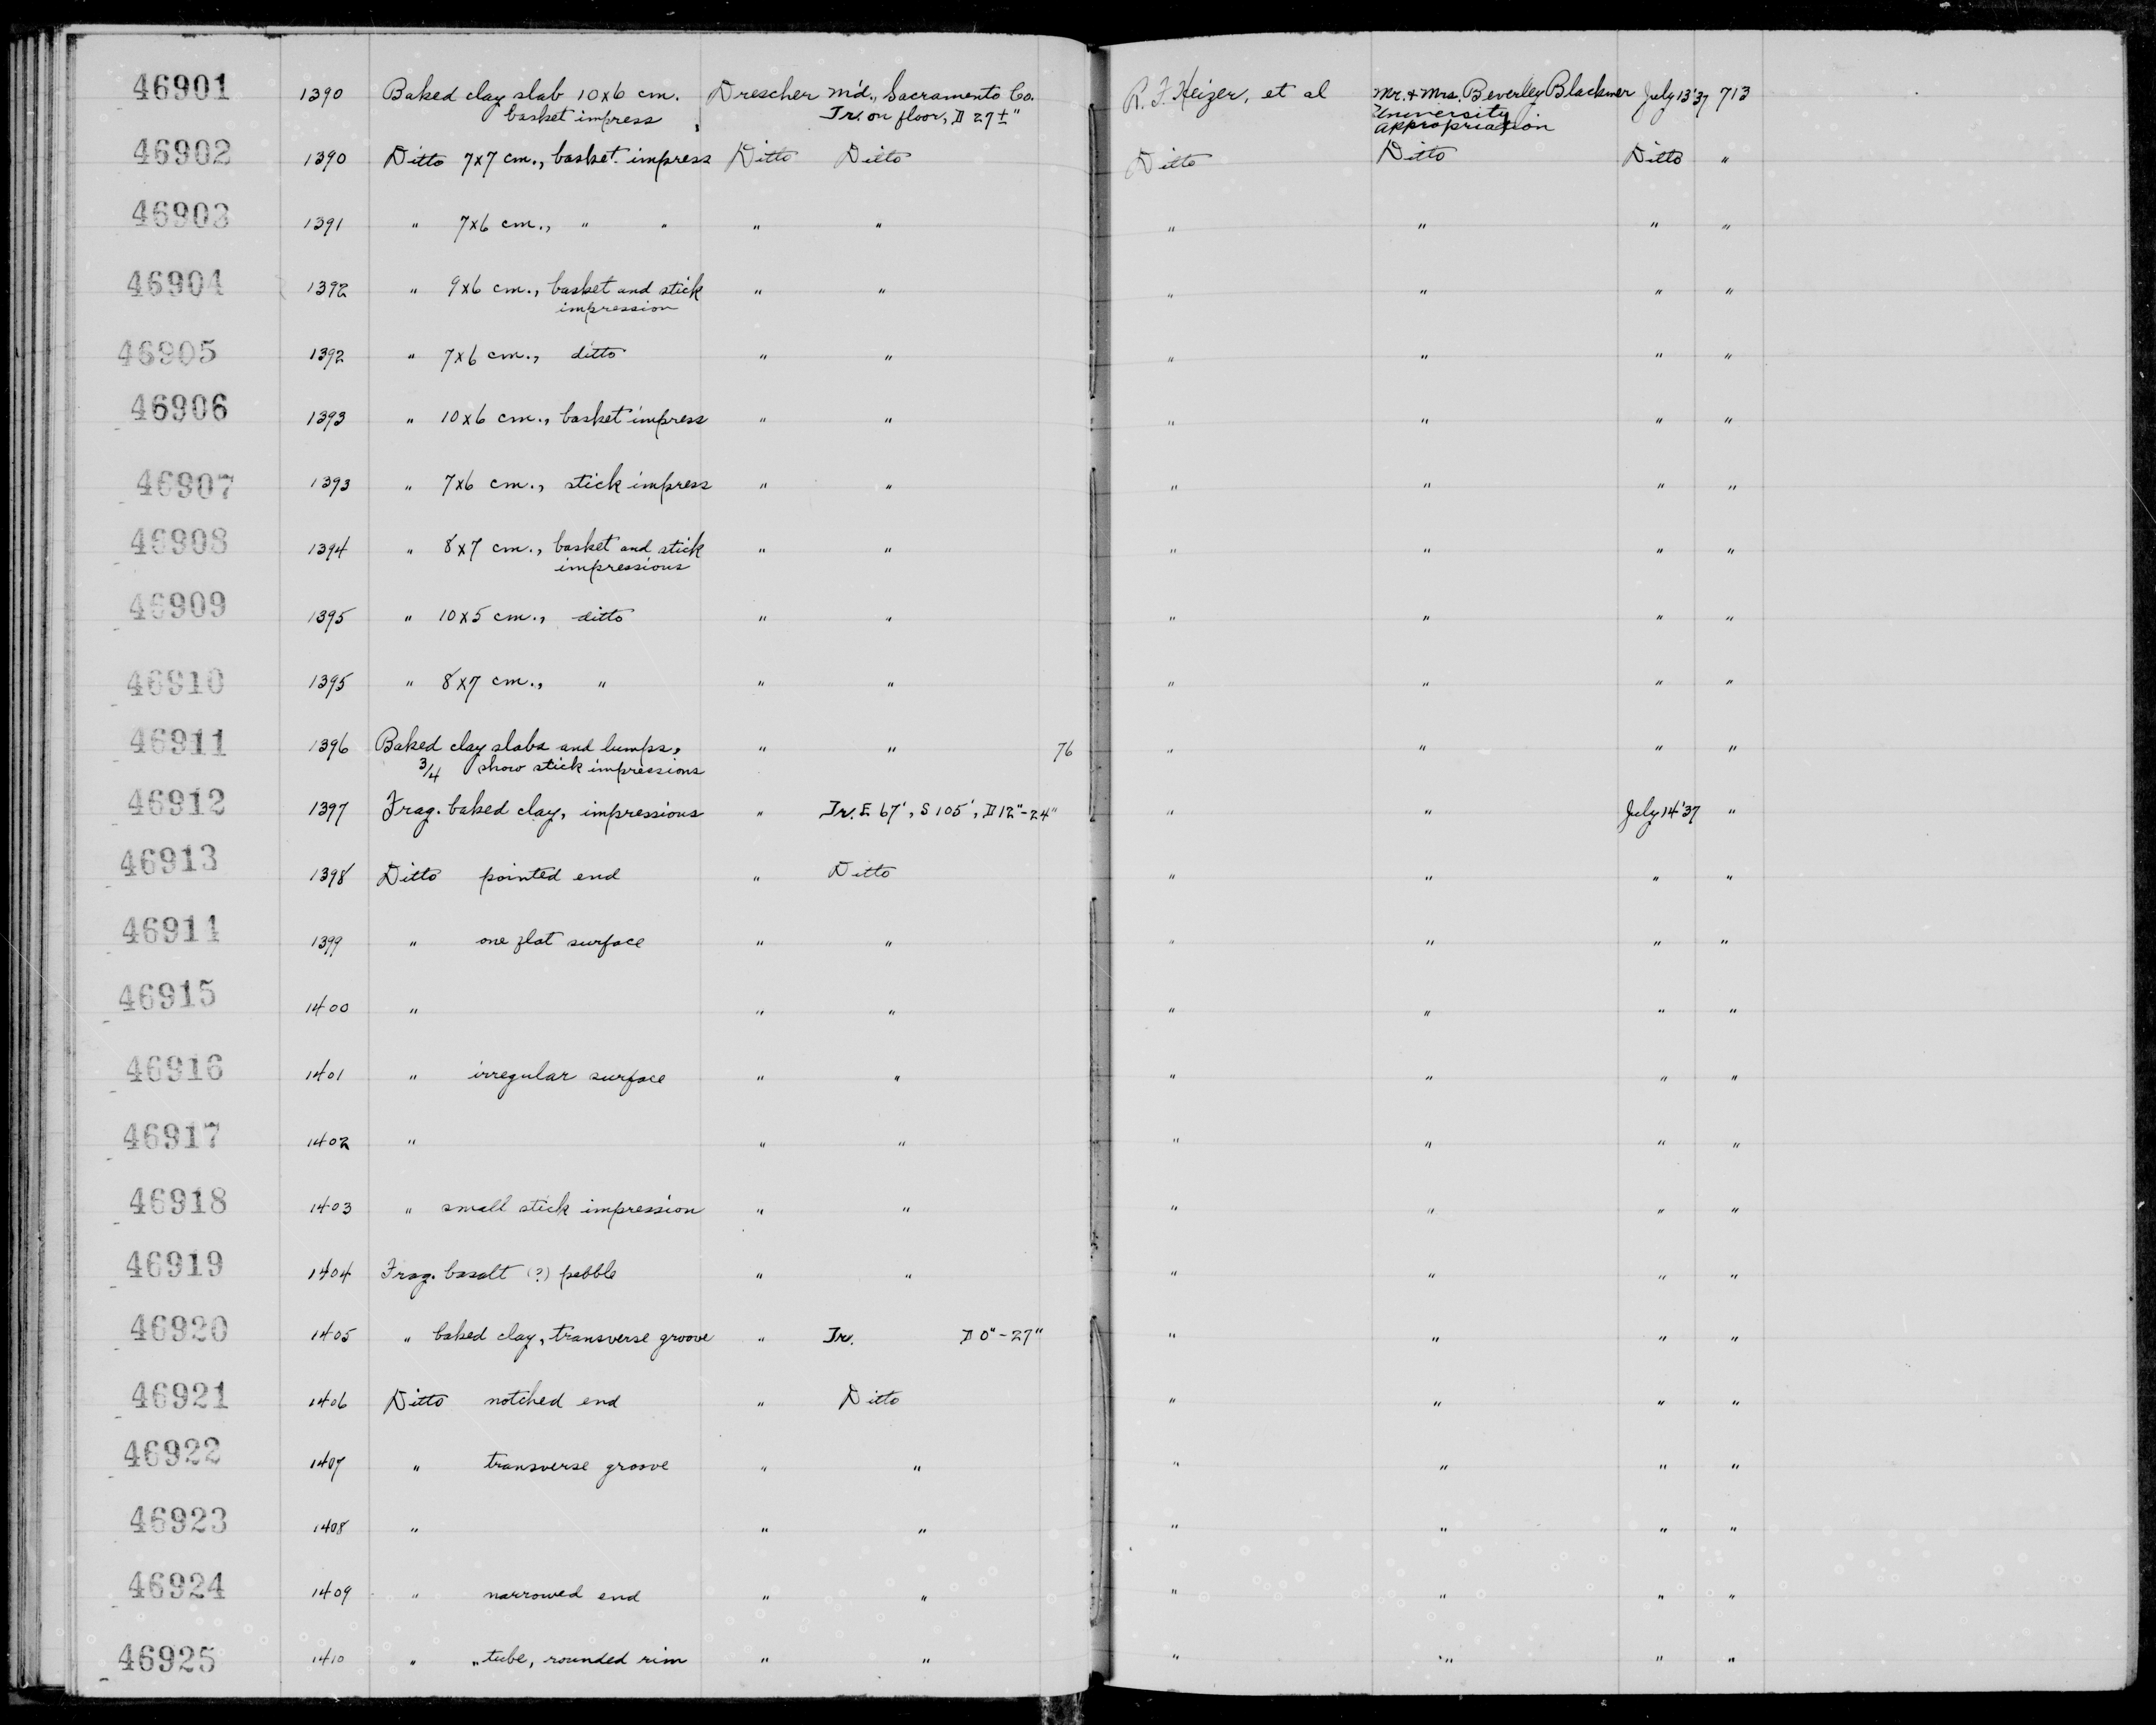 46901 1390 Baked clay slab 10x6 cm. Drescher m'd., Sacramento Co. R. F. Heizer, et al Mr. + Mrs. Beverley Blackmer July 13 '37 713
basket impress Tr. on floor, D 27±" University
appropriation
46902 1390 Ditto 7x7 cm., basket impress Ditto Ditto Ditto Ditto Ditto "
46903 1391 " 7x6 cm., " " " " " " " "
46904 1392 " 9x6 cm., basket and stick " " " " " "
impression
46905 1392 " 7x6 cm., ditto " " " " " "
46906 1393 " 10x6 cm., basket impress " " " " " "
46907 1393 " 7x6 cm., stick impress " " " " " "
46908 1394 " 8x7 cm., basket and stick " " " " " "
impressions
46909 1395 " 10x5 cm., ditto " " " " " "
46910 1395 " 8x7 cm., " " " " " " "
46911 1396 Baked clay slabs and lumps, " " 76 " " " "
3/4 show stick impressions
46912 1397 Frag. baked clay, impressions " Tr. E 67', S 105', D 12"-24" " " July 14 '37 "
46913 1398 Ditto pointed end " Ditto " " " "
46914 1399 " one flat surface " " " " " "
46915 1400 " " " " " " "
46916 1401 " irregular surface " " " " " "
46917 1402 " " " " " " "
46918 1403 " small stick impression " " " " " "
46919 1404 Frag. basalt (?) pebble " " " " " "
46920 1405 " baked clay, transverse groove " Tr. D 0"-27" " " " "
46921 1406 Ditto notched end " Ditto " " " "
46922 1407 " transverse groove " " " " " "
46923 1408 " " " " " " "
46924 1409 " narrowed end " " " " " "
46925 1410 " " tube, rounded rim " " " " " "